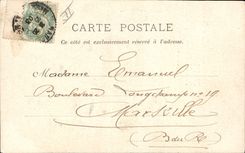 CARTE POSTALE
Ce côté est exclusivement réservé à l'adresse.
Madame Emanuel
Boulevard Longchamp nº 19
Marseille
(B du R)